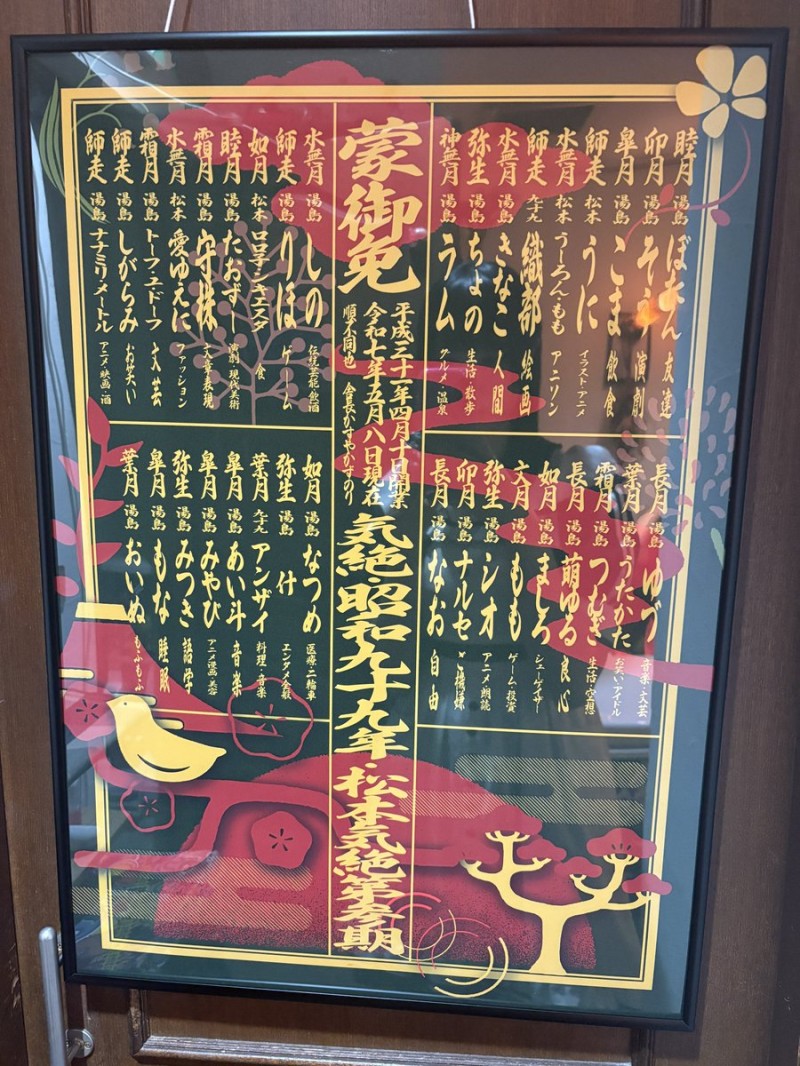 睦月 湯島 ぼたん 友達
卯月 湯島 演劇
皐月 湯島 こま 飲食
師走 松本 うに イラスト・アニメ
水無月 松本 うーろん・もも アニソン
師走 九十九 織部 絵画
水無月 湯島 きなこ 人間
弥生 湯島 ちょの 生活・散歩
神無月 湯島 ラム グルメ・温泉
長月 湯島 ゆづ 音楽・文芸
葉月 湯島 うたかた お笑い・アイドル
霜月 湯島 つむぎ 生活・空想
長月 湯島 萌ゆる 良心
如月 湯島 ましろ シューゲイザー
文月 湯島 もも ゲーム・投資
弥生 湯島 シオ アニメ・朗読
卯月 湯島 ナルセ ご機嫌
長月 湯島 なお 自由
蒙御免
平成三十一年四月十日開業
令和七年五月八日現在
順不同也 会長かすやかずのり
気絶・昭和九十九年・松本気絶第参期
水無月 湯島 しの 伝統芸能・飲酒
師走 湯島 りほ ゲーム
如月 松本 ロロ子・キエスタ 食
睦月 湯島 たおずー 演劇・現代美術
霜月 湯島 守株 文章表現
水無月 松本 愛ゆえに ファッション
霜月 湯島 トーフ・ユドーフ 文芸
師走 湯島 しがらみ お笑い
師走 湯島 ナナミリメートル アニメ・映画・酒
如月 湯島 なつめ 医療・二輪車
弥生 湯島 付 エンタメ全般
葉月 九十九 アンザイ 料理・音楽
皐月 湯島 あい斗 音楽
皐月 湯島 みやび アニメ・漫画・美容
弥生 湯島 みつき 語学
皐月 湯島 もな 睡眠
葉月 湯島 おいぬ もふもふ